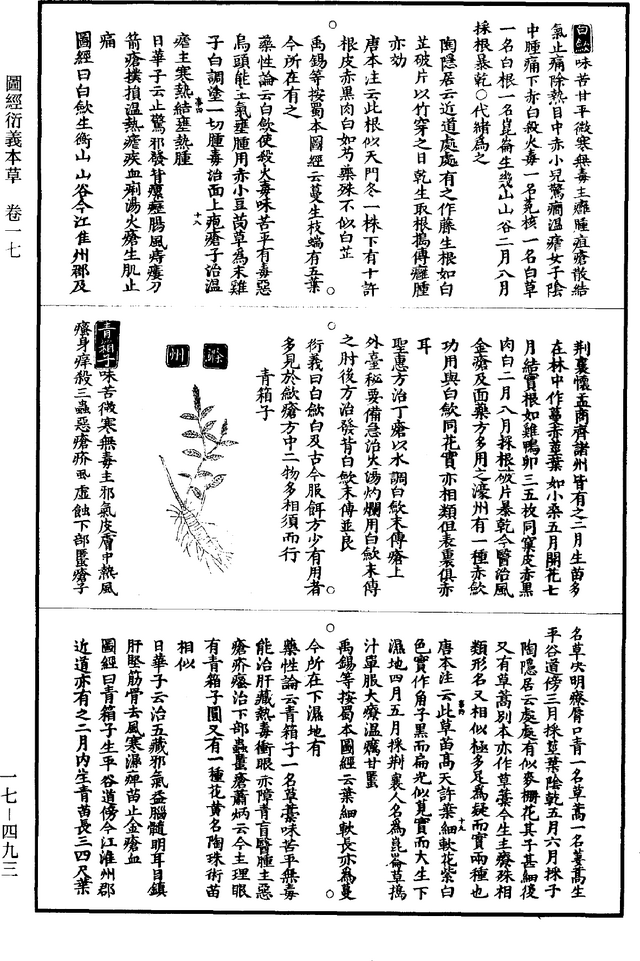 圖經衍義本草　卷一七
白蘞味苦甘平微寒無毒主癰腫疽瘡散結
氣止痛除熱目中赤小兒驚癇溫瘧女子陰
中腫痛下赤白殺火毒一名菟核一名白草
一名白根一名崑崙生衡山山谷二月八月
採根暴乾○代赭為之
陶隱居云近道處處有之作藤生根如白
芷破片以竹穿之日乾生取根搗傅癰腫
亦効
唐本注云此根似天門冬一株下有十許
根皮赤黑肉白如芍藥殊不似白芷
禹錫等按蜀本圖經云蔓生枝端有五葉
今所在有之
藥性論云白蘞使殺火毒味苦平有毒惡
烏頭能主氣壅腫用赤小豆茵草為末雞
子白調塗一切腫毒治面上疱瘡子治溫
瘧主寒熱結壅熱腫
日華子云止驚邪發背瘰癧腸風痔瘻刀
箭瘡撲損溫熱瘧疾血痢湯火瘡生肌止
痛
圖經曰白蘞生衡山山谷今江淮州郡及
荆襄懷孟商齊諸州皆有之二月生苗多
在林中作蔓赤莖葉如小桑五月開花七
月結實根如雞鴨卵三五枚同窠皮赤黑
肉白二月八月採根破片暴乾今醫治風
金瘡及面藥方多用之濠州有一種赤蘞
功用與白蘞同花實亦相類但表裏俱赤
耳
聖惠方治丁瘡以水調白蘞末傅瘡上
外臺秘要備急治火湯灼爛用白蘞末傅
之肘後方治發背白蘞末傅並良
衍義曰白蘞白及古今服餌方少有用者
多見於斂瘡方中二物多相須而行
青箱子
滁州
青箱子味苦微寒無毒主邪氣皮膚中熱風
瘙身痒殺三蟲惡瘡疥虱痔蝕下部䘌瘡子
名草決明療脣口青一名草蒿一名萋蒿生
平谷道傍三月採莖葉陰乾五月六月採子
陶隱居云處處有似麥柵花其子甚細後
又有草蒿別本亦作草藁今生主療殊相
類形名又相似極多足為疑而實兩種也
唐本注云此草苗高尺許葉細軟花紫白
色實作角子黑而扁光似莧實而大生下
濕地四月五月採荆襄人名為崑崙草搗
汁單服大療溫癘甘䘌
禹錫等按蜀本圖經云葉細軟長亦為蔓
今所在下濕地有
藥性論云青箱子一名草藁味苦平無毒
能治肝藏熱毒衝眼亦障青盲翳腫主惡
瘡疥瘙治下部蟲䘌瘡蕭炳云今主理眼
有青箱子圓又有一種花黃名陶珠術苗
相似
日華子云治五藏邪氣益腦髓明耳目鎮
肝堅筋骨去風寒濕痺苗止金瘡血
圖經曰青箱子生平谷道傍今江淮州郡
近道亦有之二月內生青苗長三四尺葉
一七－四九三